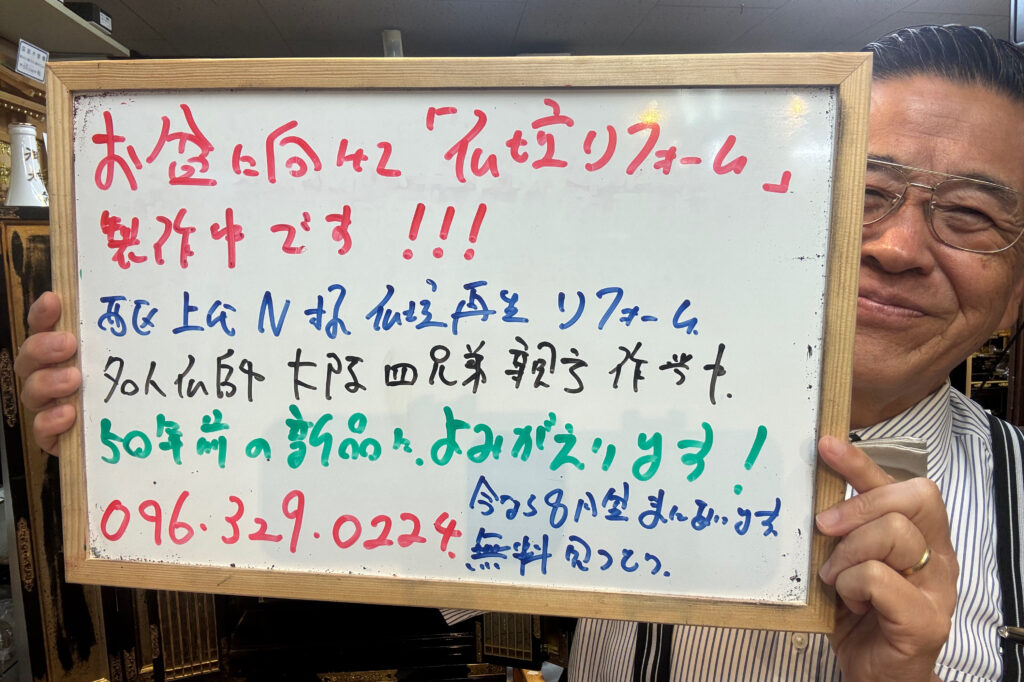 お盆に向けて「仏壇リフォーム」
製作中です!!!
西区上代N様仏壇再生リフォーム
名人仏師大阪四兄弟親方作業中.
50年前の新品に.よみがえります!
096.329.0224.
今なら8月盆まにあいます
無料見つもり.